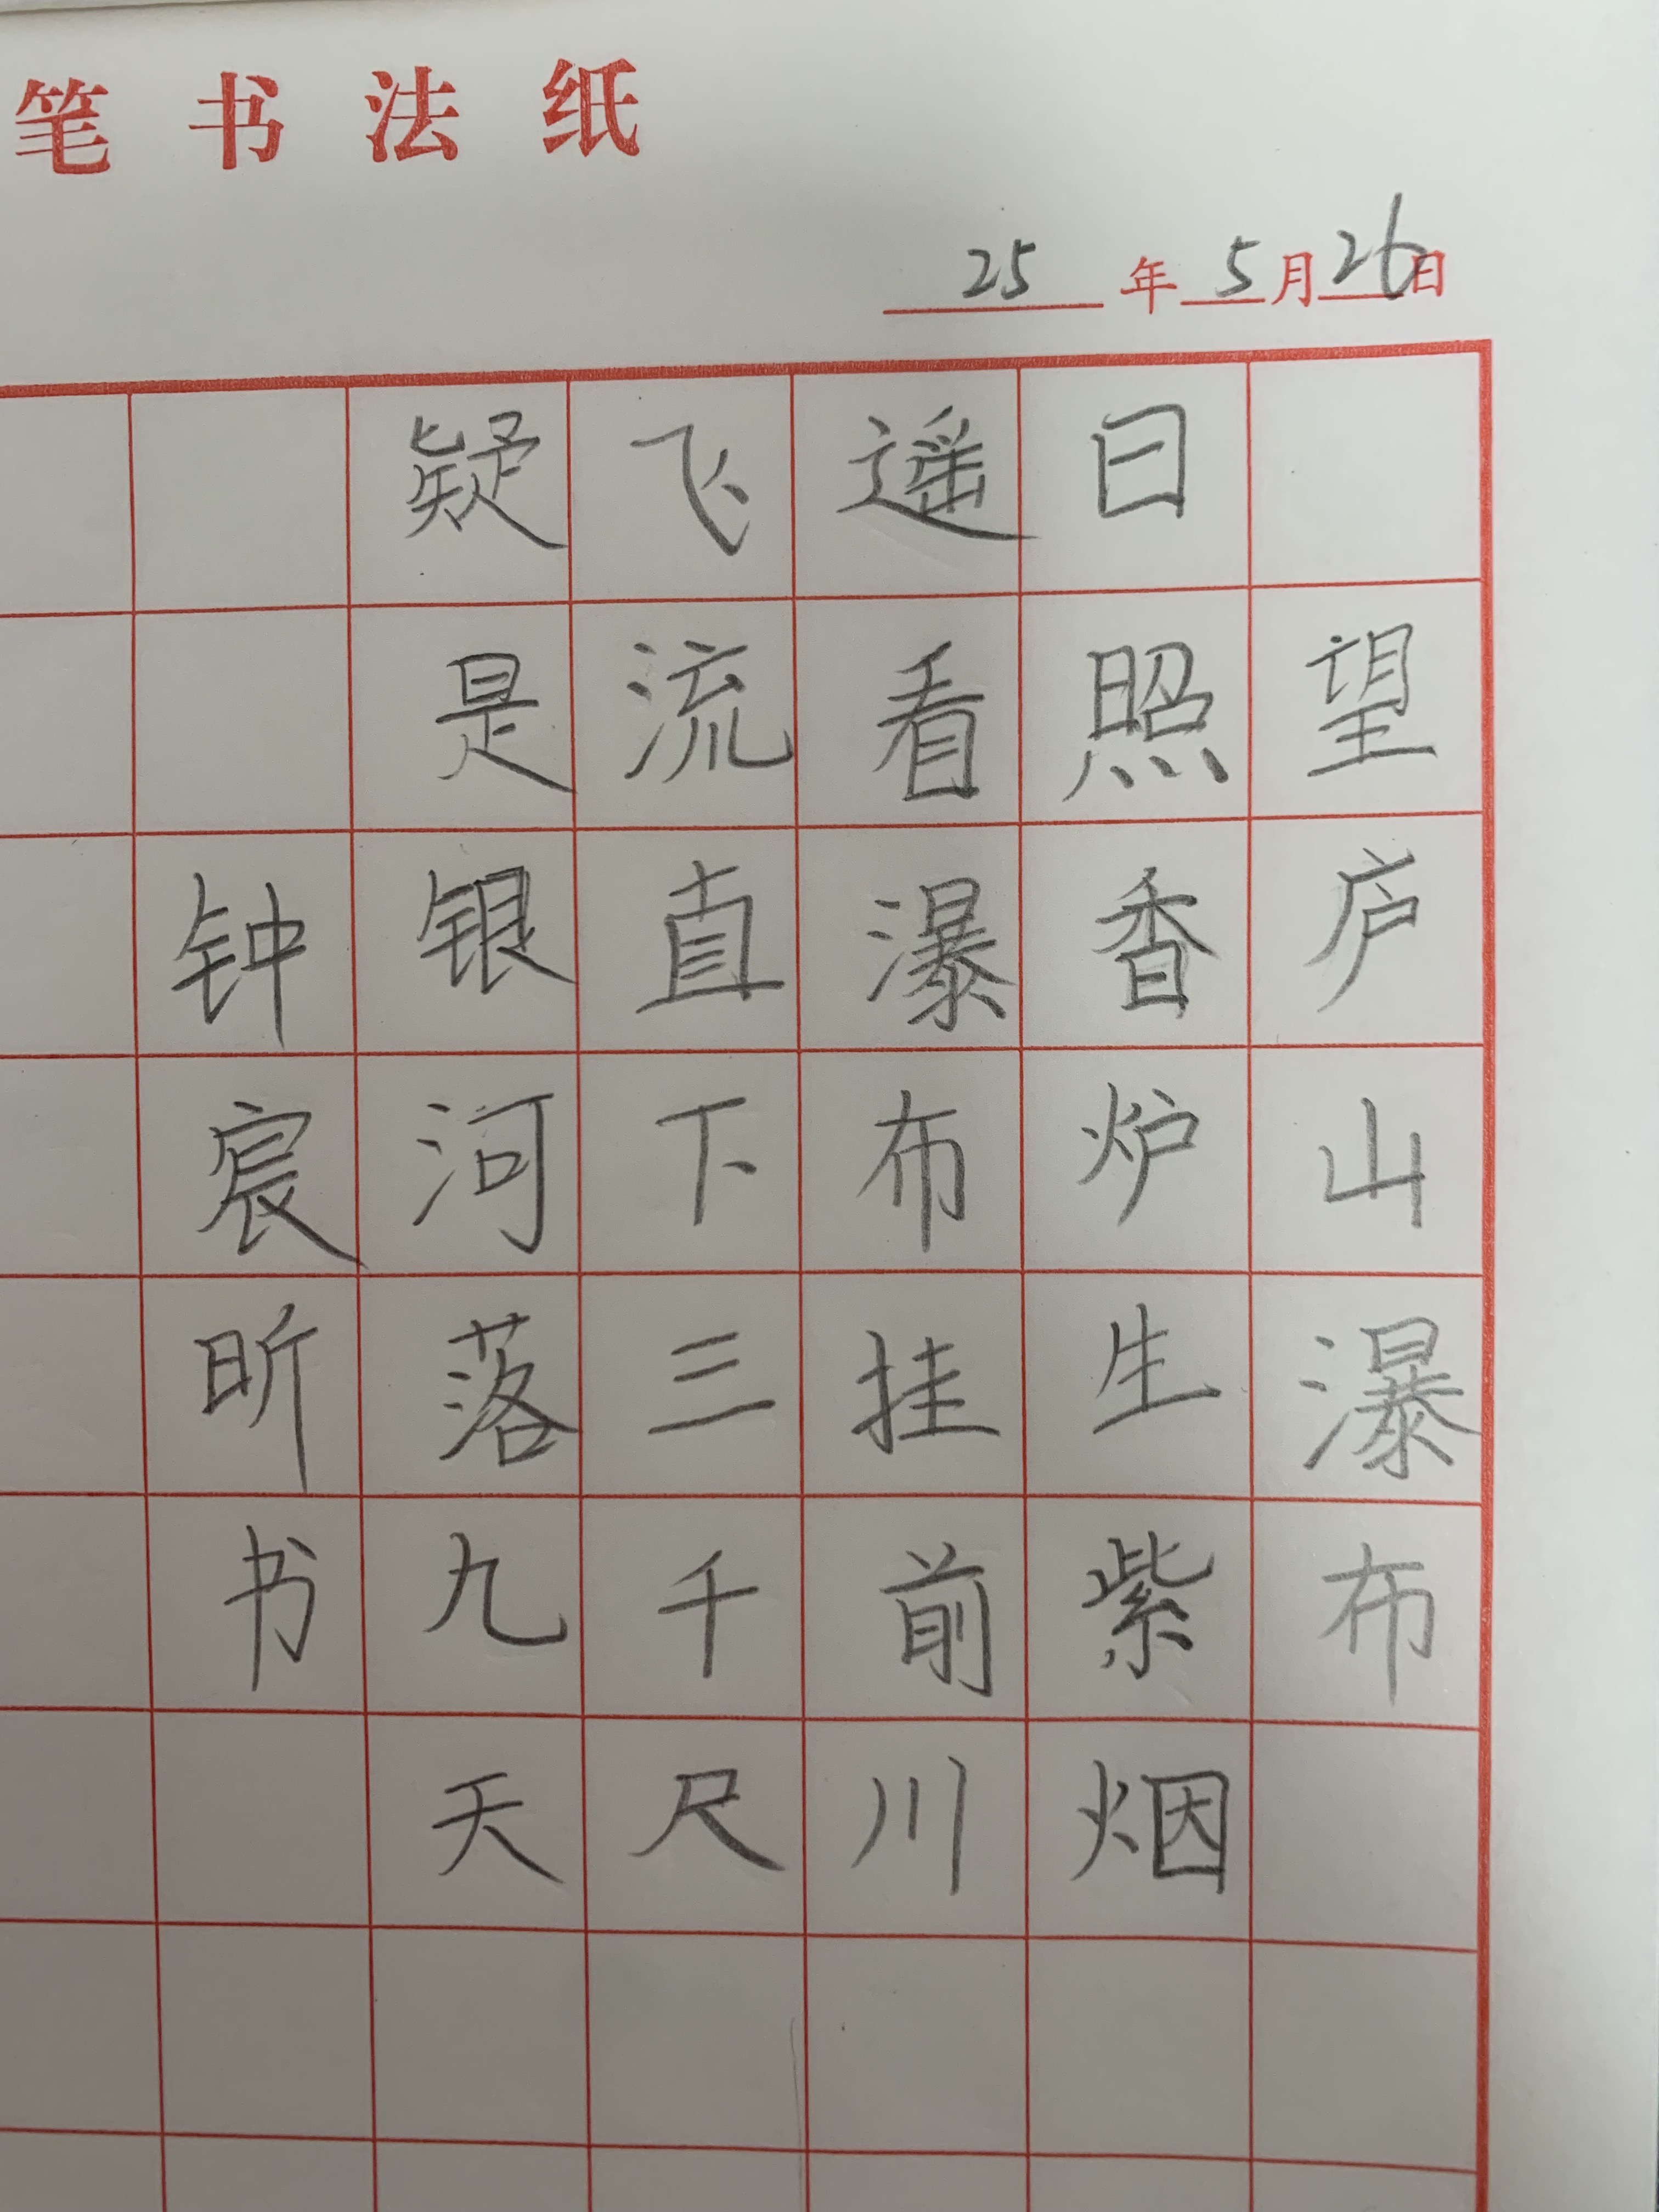 笔书法纸
25年5月26日
望庐山瀑布
日照香炉生紫烟
遥看瀑布挂前川
飞流直下三千尺
疑是银河落九天
钟宸昕书